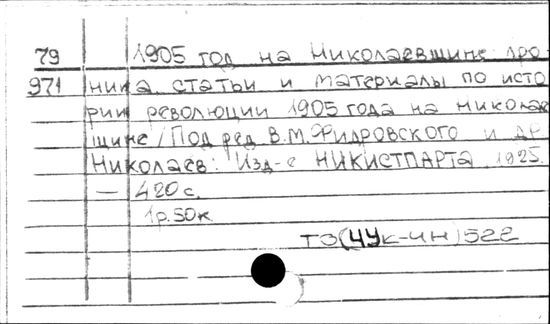 79 1905 год на Николаевщине: хро
971 ника, статьи и материалы по исто
рии революции 1905 года на Николае
щине / Под ред В.М. Фидровского и др
Николаев: Изд-е НИКИСТПАРТА 1925.
— 420 с.
1р. 50к
ТЗ(4Ук-ин)522